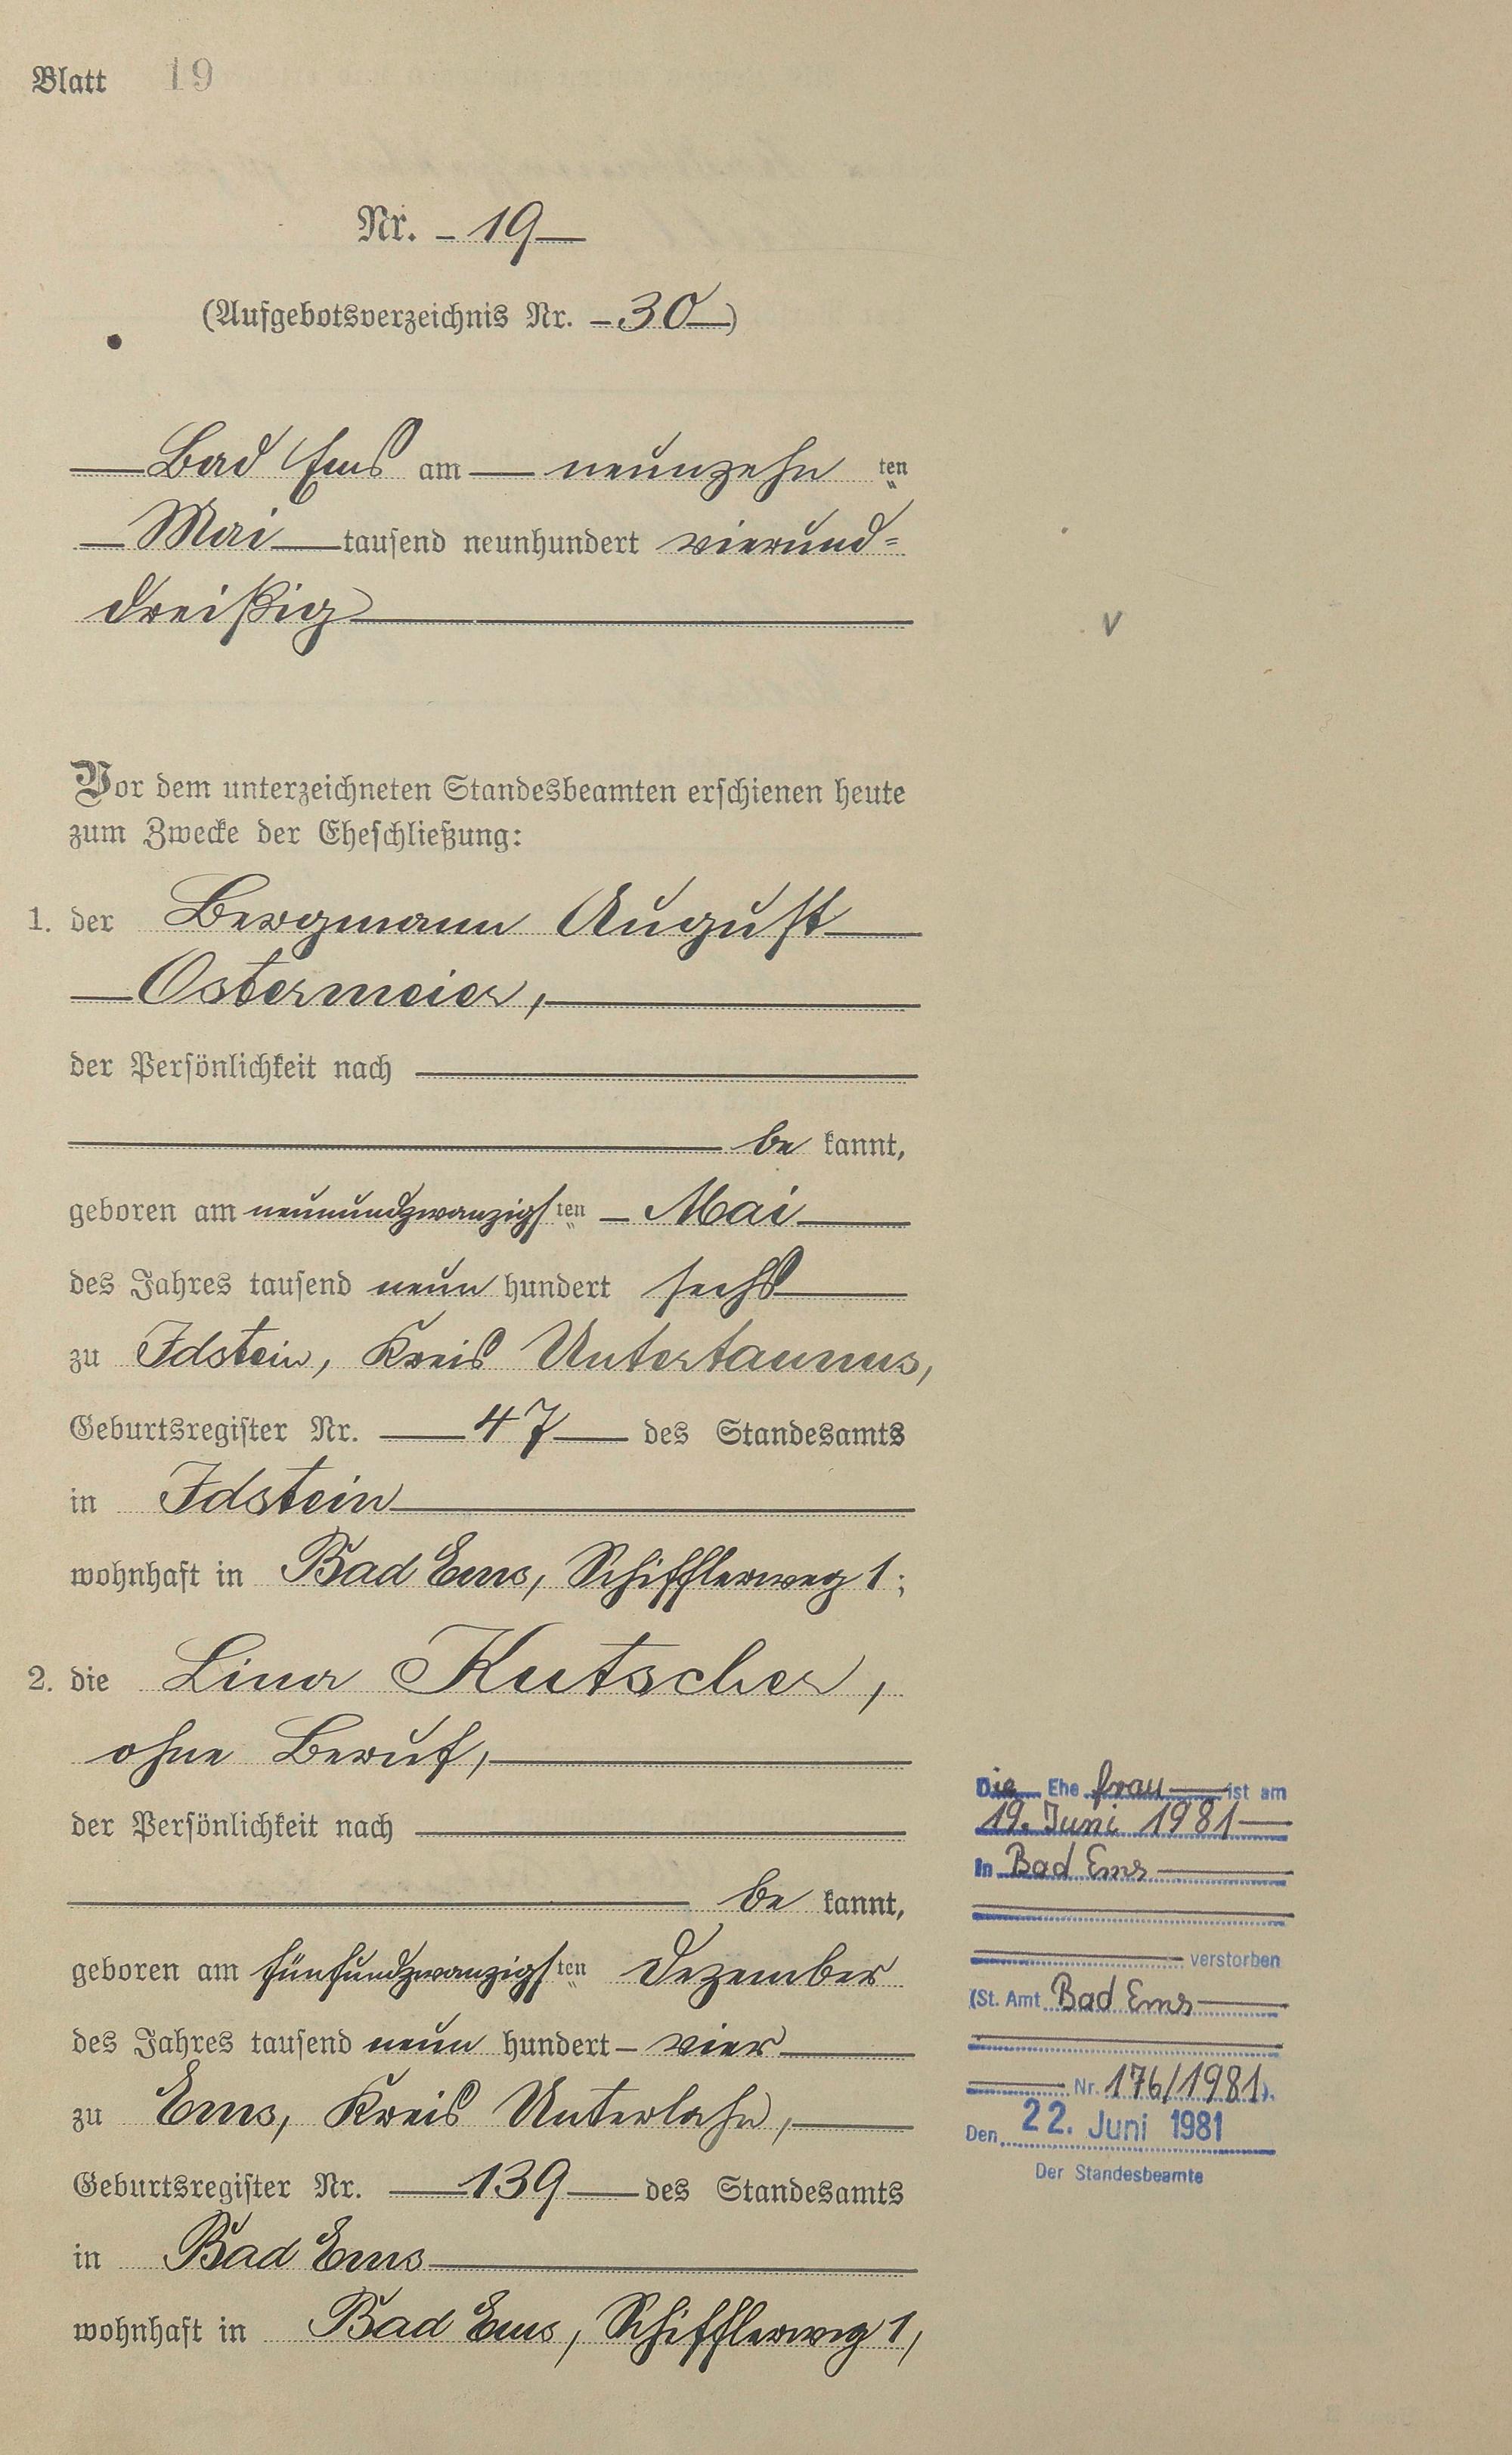 Blatt 19
Nr. 19
(Aufgebotsverzeichnis Nr. 30)
Bad Ems am neunzehn ten
Mai tausend neunhundert vierund=
dreißig
v
Vor dem unterzeichneten Standesbeamten erschienen heute
zum Zwecke der Eheschließung:
1. der Bergmann August
Ostermeier,
der Persönlichkeit nach
be kannt,
geboren am neunundzwanzigsten Mai
des Jahres tausend neun hundert sechs
zu Idstein, Kreis Untertaunus,
Geburtsregister Nr. 47 des Standesamts
in Idstein
wohnhaft in Bad Ems, Schifflerweg 1;
2. die Lina Kutscher,
ohne Beruf,
der Persönlichkeit nach
be kannt,
geboren am fünfundzwanzigsten Dezember
des Jahres tausend neun hundert vier
zu Ems, Kreis Unterlahn,
Geburtsregister Nr. 139 des Standesamts
in Bad Ems
wohnhaft in Bad Ems, Schifflerweg 1,
Die Ehe frau ist am
19. Juni 1981
in Bad Ems
verstorben
(St. Amt Bad Ems
Nr. 176/1981).
Den 22. Juni 1981
Der Standesbeamte